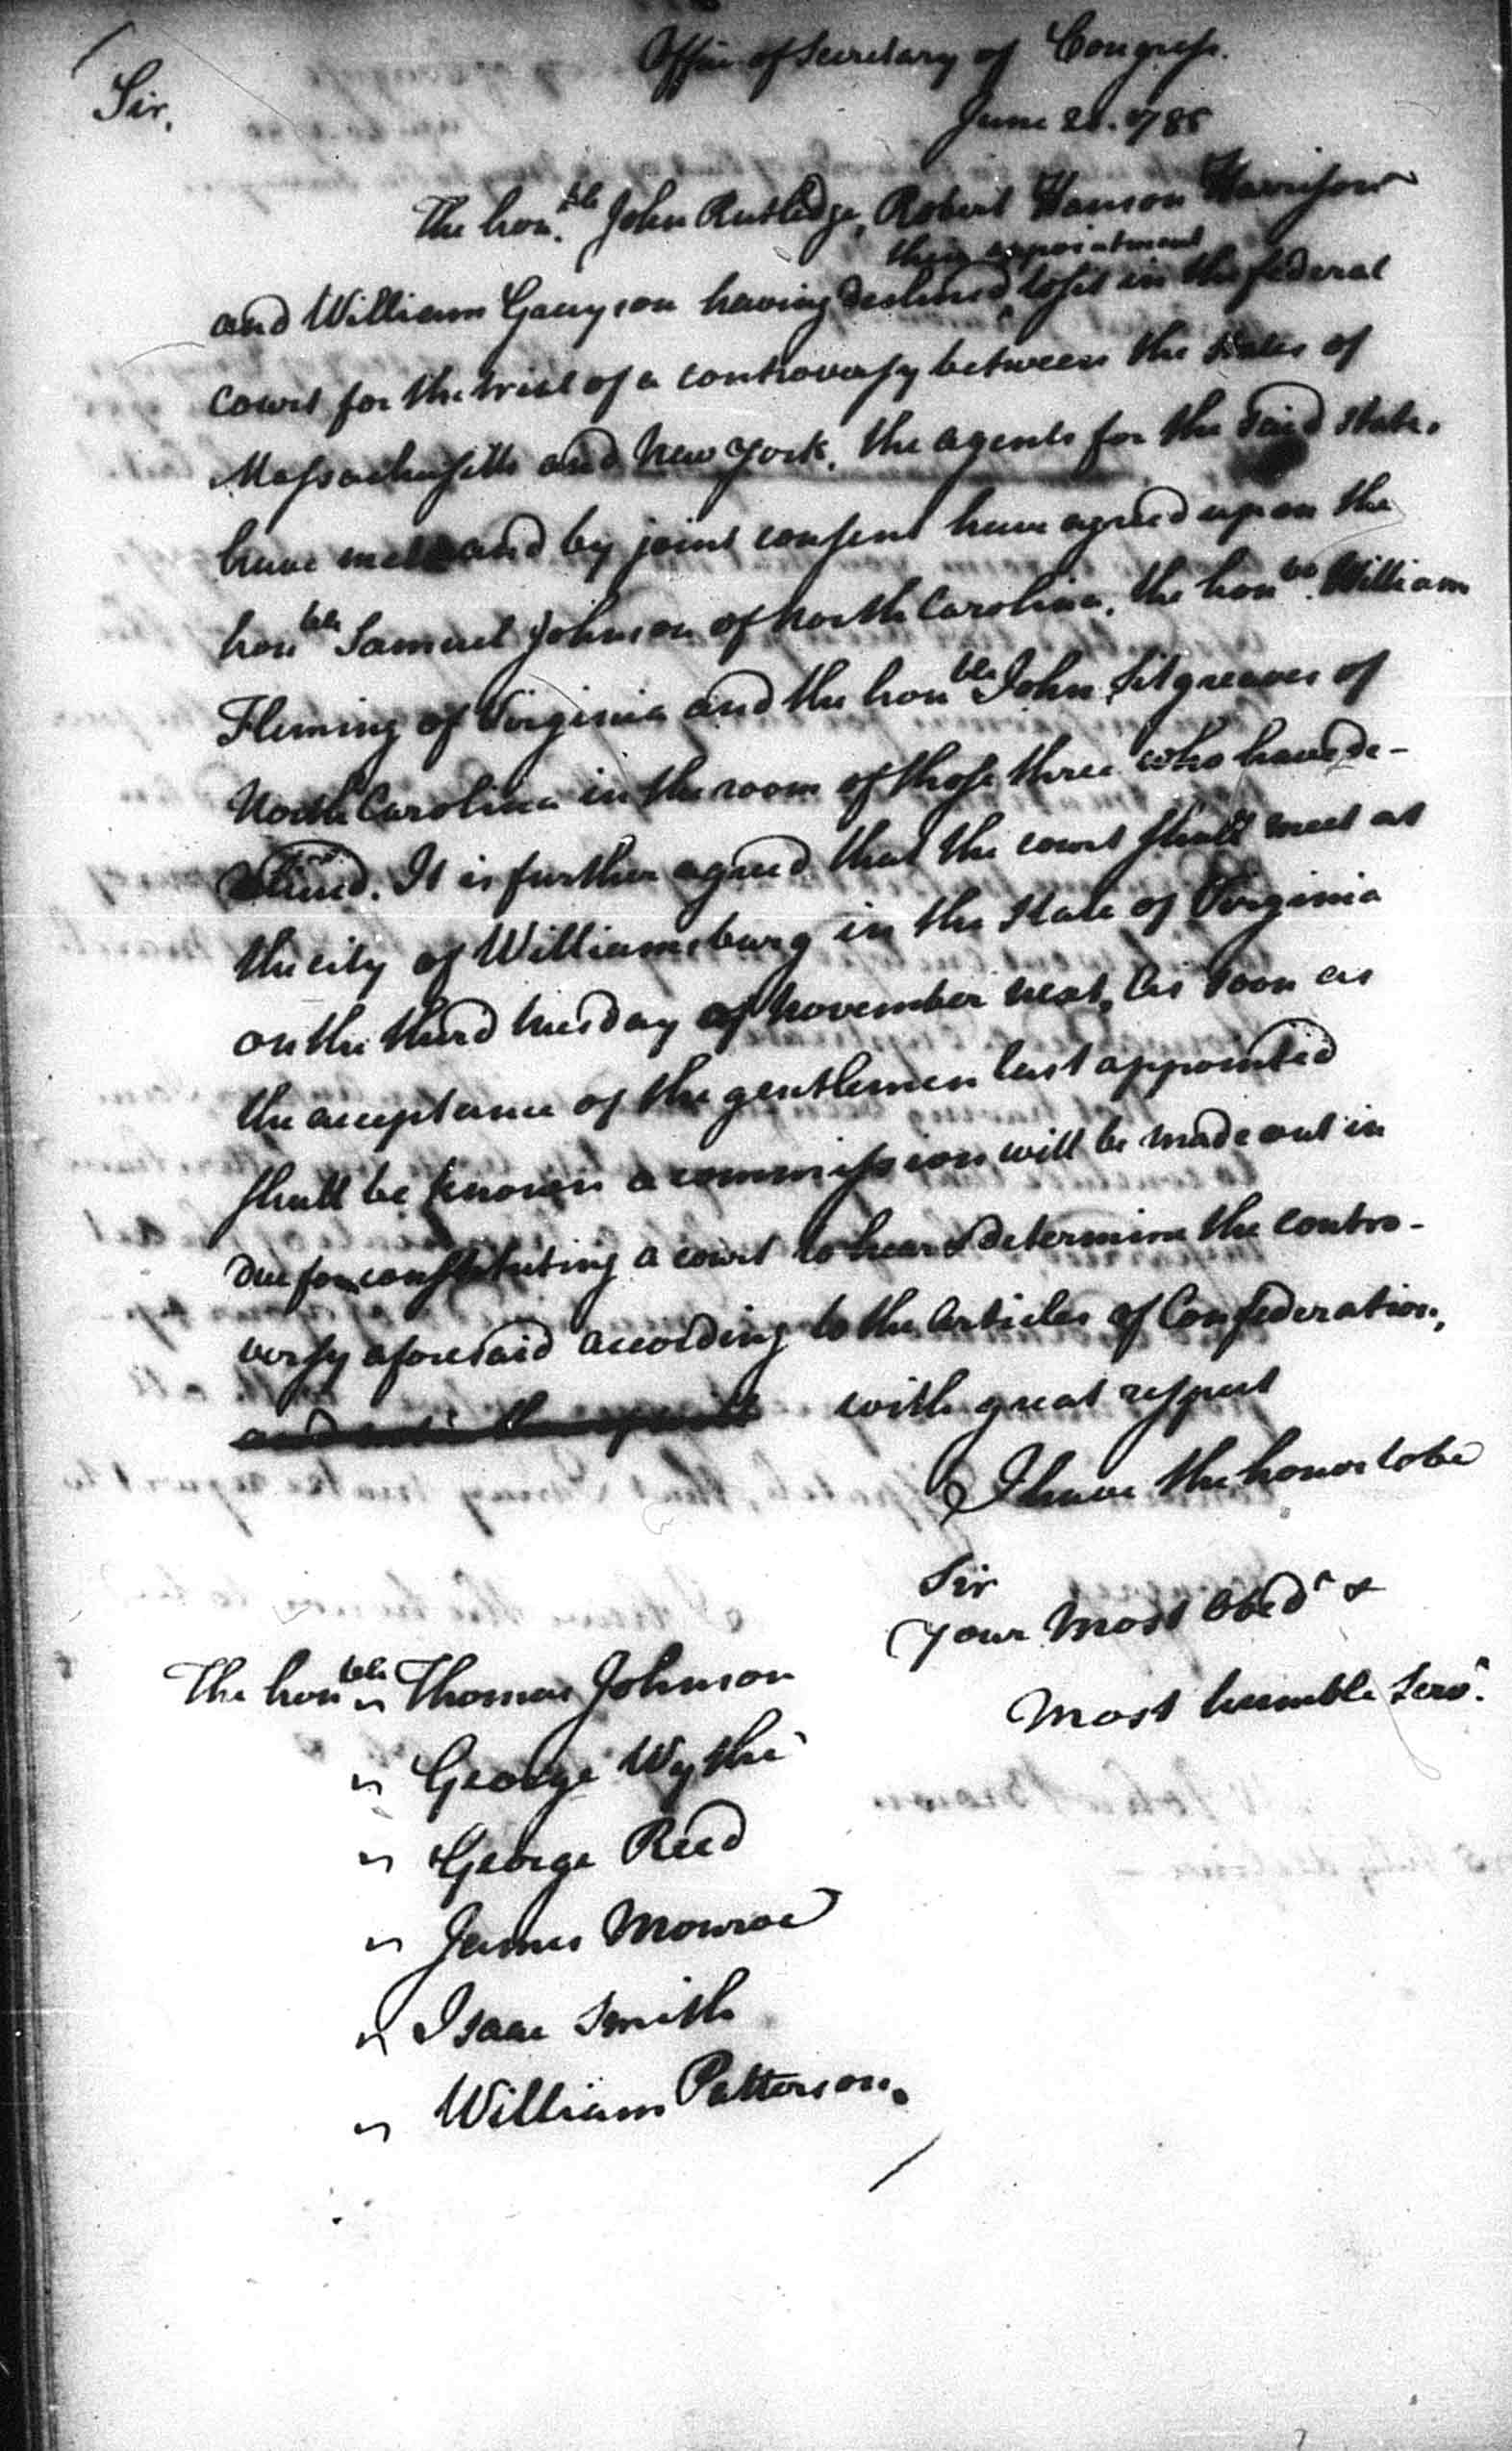 Office of Secretary of Congress.
Sir,
June 21. 1785
The hon.ble John Rutledge, Robert Hanson Harrison
their appointment
and William Grayson having declined to sit in the federal
court for the trial of a controversy between the states of
Massachusetts and New York, the agents for the said state.
have met and by joint consent have agreed upon the
honble Samuel Johnson of North Carolina, the honble. William
Fleming of Virginia and the honble John Sitgreaves of
North Carolina in the room of those three who have de-
clined. It is further agreed that the court shall meet at
the city of Williamsburg in the State of Virginia
on the third tuesday of November next. As soon as
the acceptance of the gentlemen last appointed
shall be known a commission will be made out in
due for constituting a court to hear & determine the contro-
versy aforesaid according to the Articles of Confederation,
with great respect
I have the honor to be
Sir
Your most obedt &
most humble Servt.
The honble " Thomas Johnson
" George Wythe
" George Reed
" James Monroe
" Isaac Smith
" William Patterson.